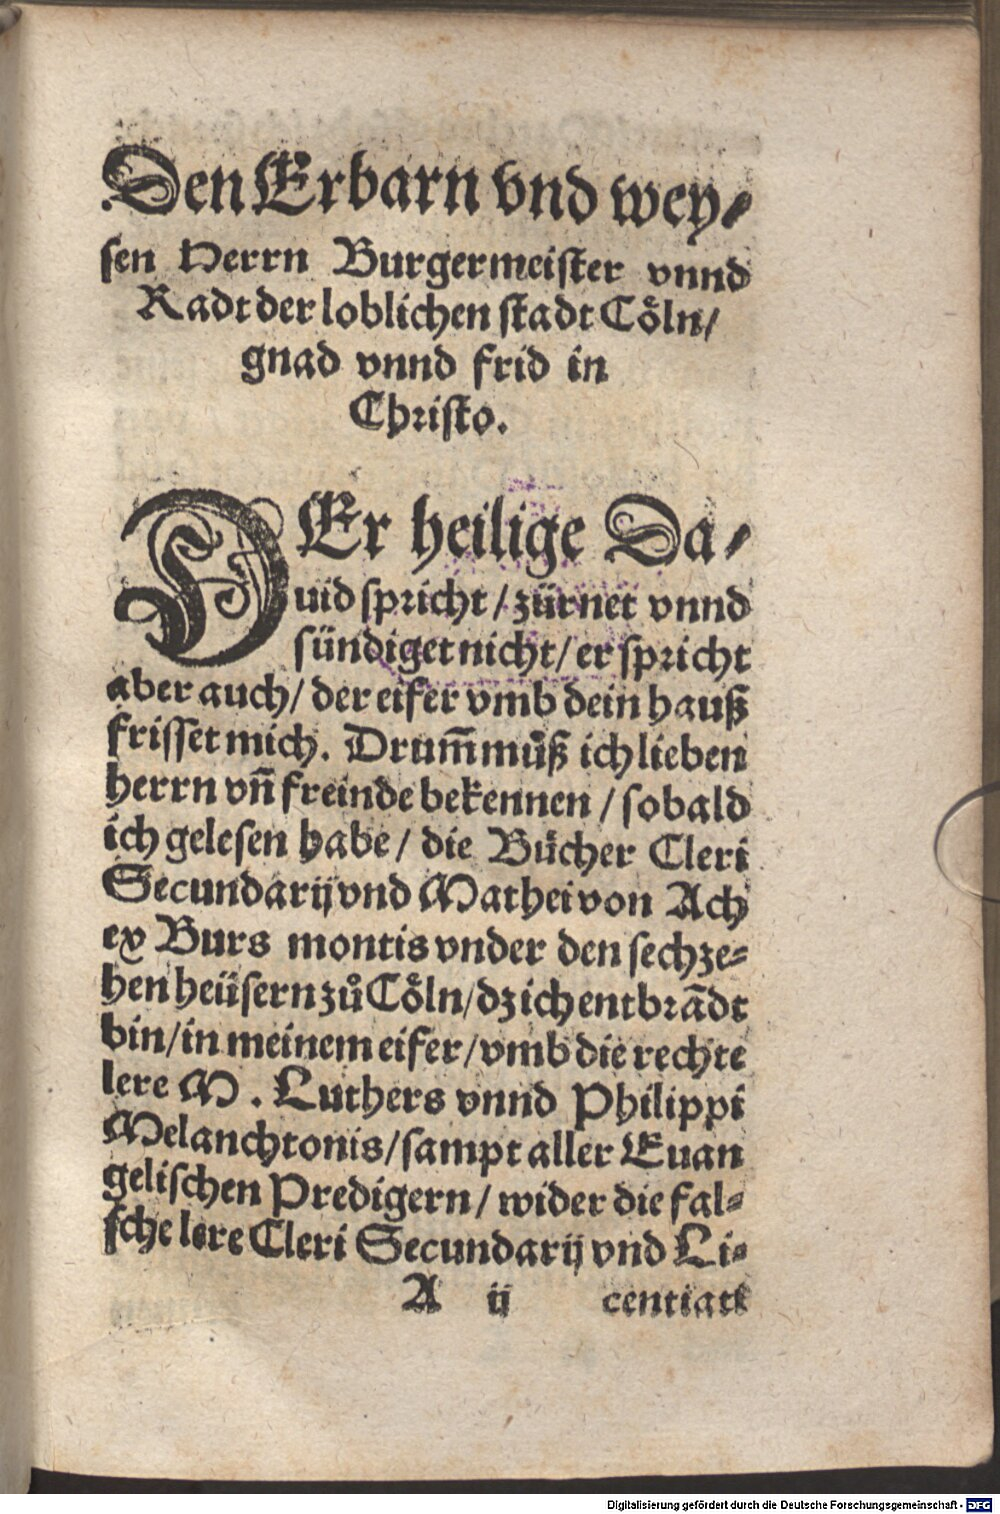 Den Erbarn vnd wey⸗
sen Herrn Burgermeister vnnd
Radt der loblichen stadt Cöln/
gnad vnnd frid in
Christo.
DEr heilige Da⸗
uid spricht/ zürnet vnnd
sündiget nicht/ er spricht
aber auch/ der eifer vmb dein hauß
frisset mich. Drum̃ můß ich lieben
herrn vñ freinde bekennen/ sobald
ich gelesen habe/ die Bůcher Cleri
Secundarij vnd Mathei von Ach
ex Burs montis vnder den sechze⸗
hen heüsern zů Cöln/ dz ich entbrãdt
bin/ in meinem eifer/ vmb die rechte
lere M. Luthers vnnd Philippi
Melanchtonis/ sampt aller Euan
gelischen Predigern/ wider die fal⸗
sche lere Cleri Secundarij vnd Li⸗
A ij centiati
Digitalisierung gefördert durch die Deutsche Forschungsgemeinschaft - DFG